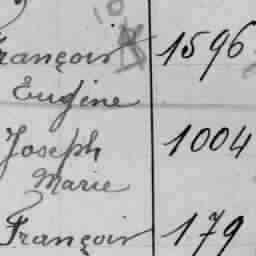 François 1596
Eugène
Joseph 1004
Marie
François 179